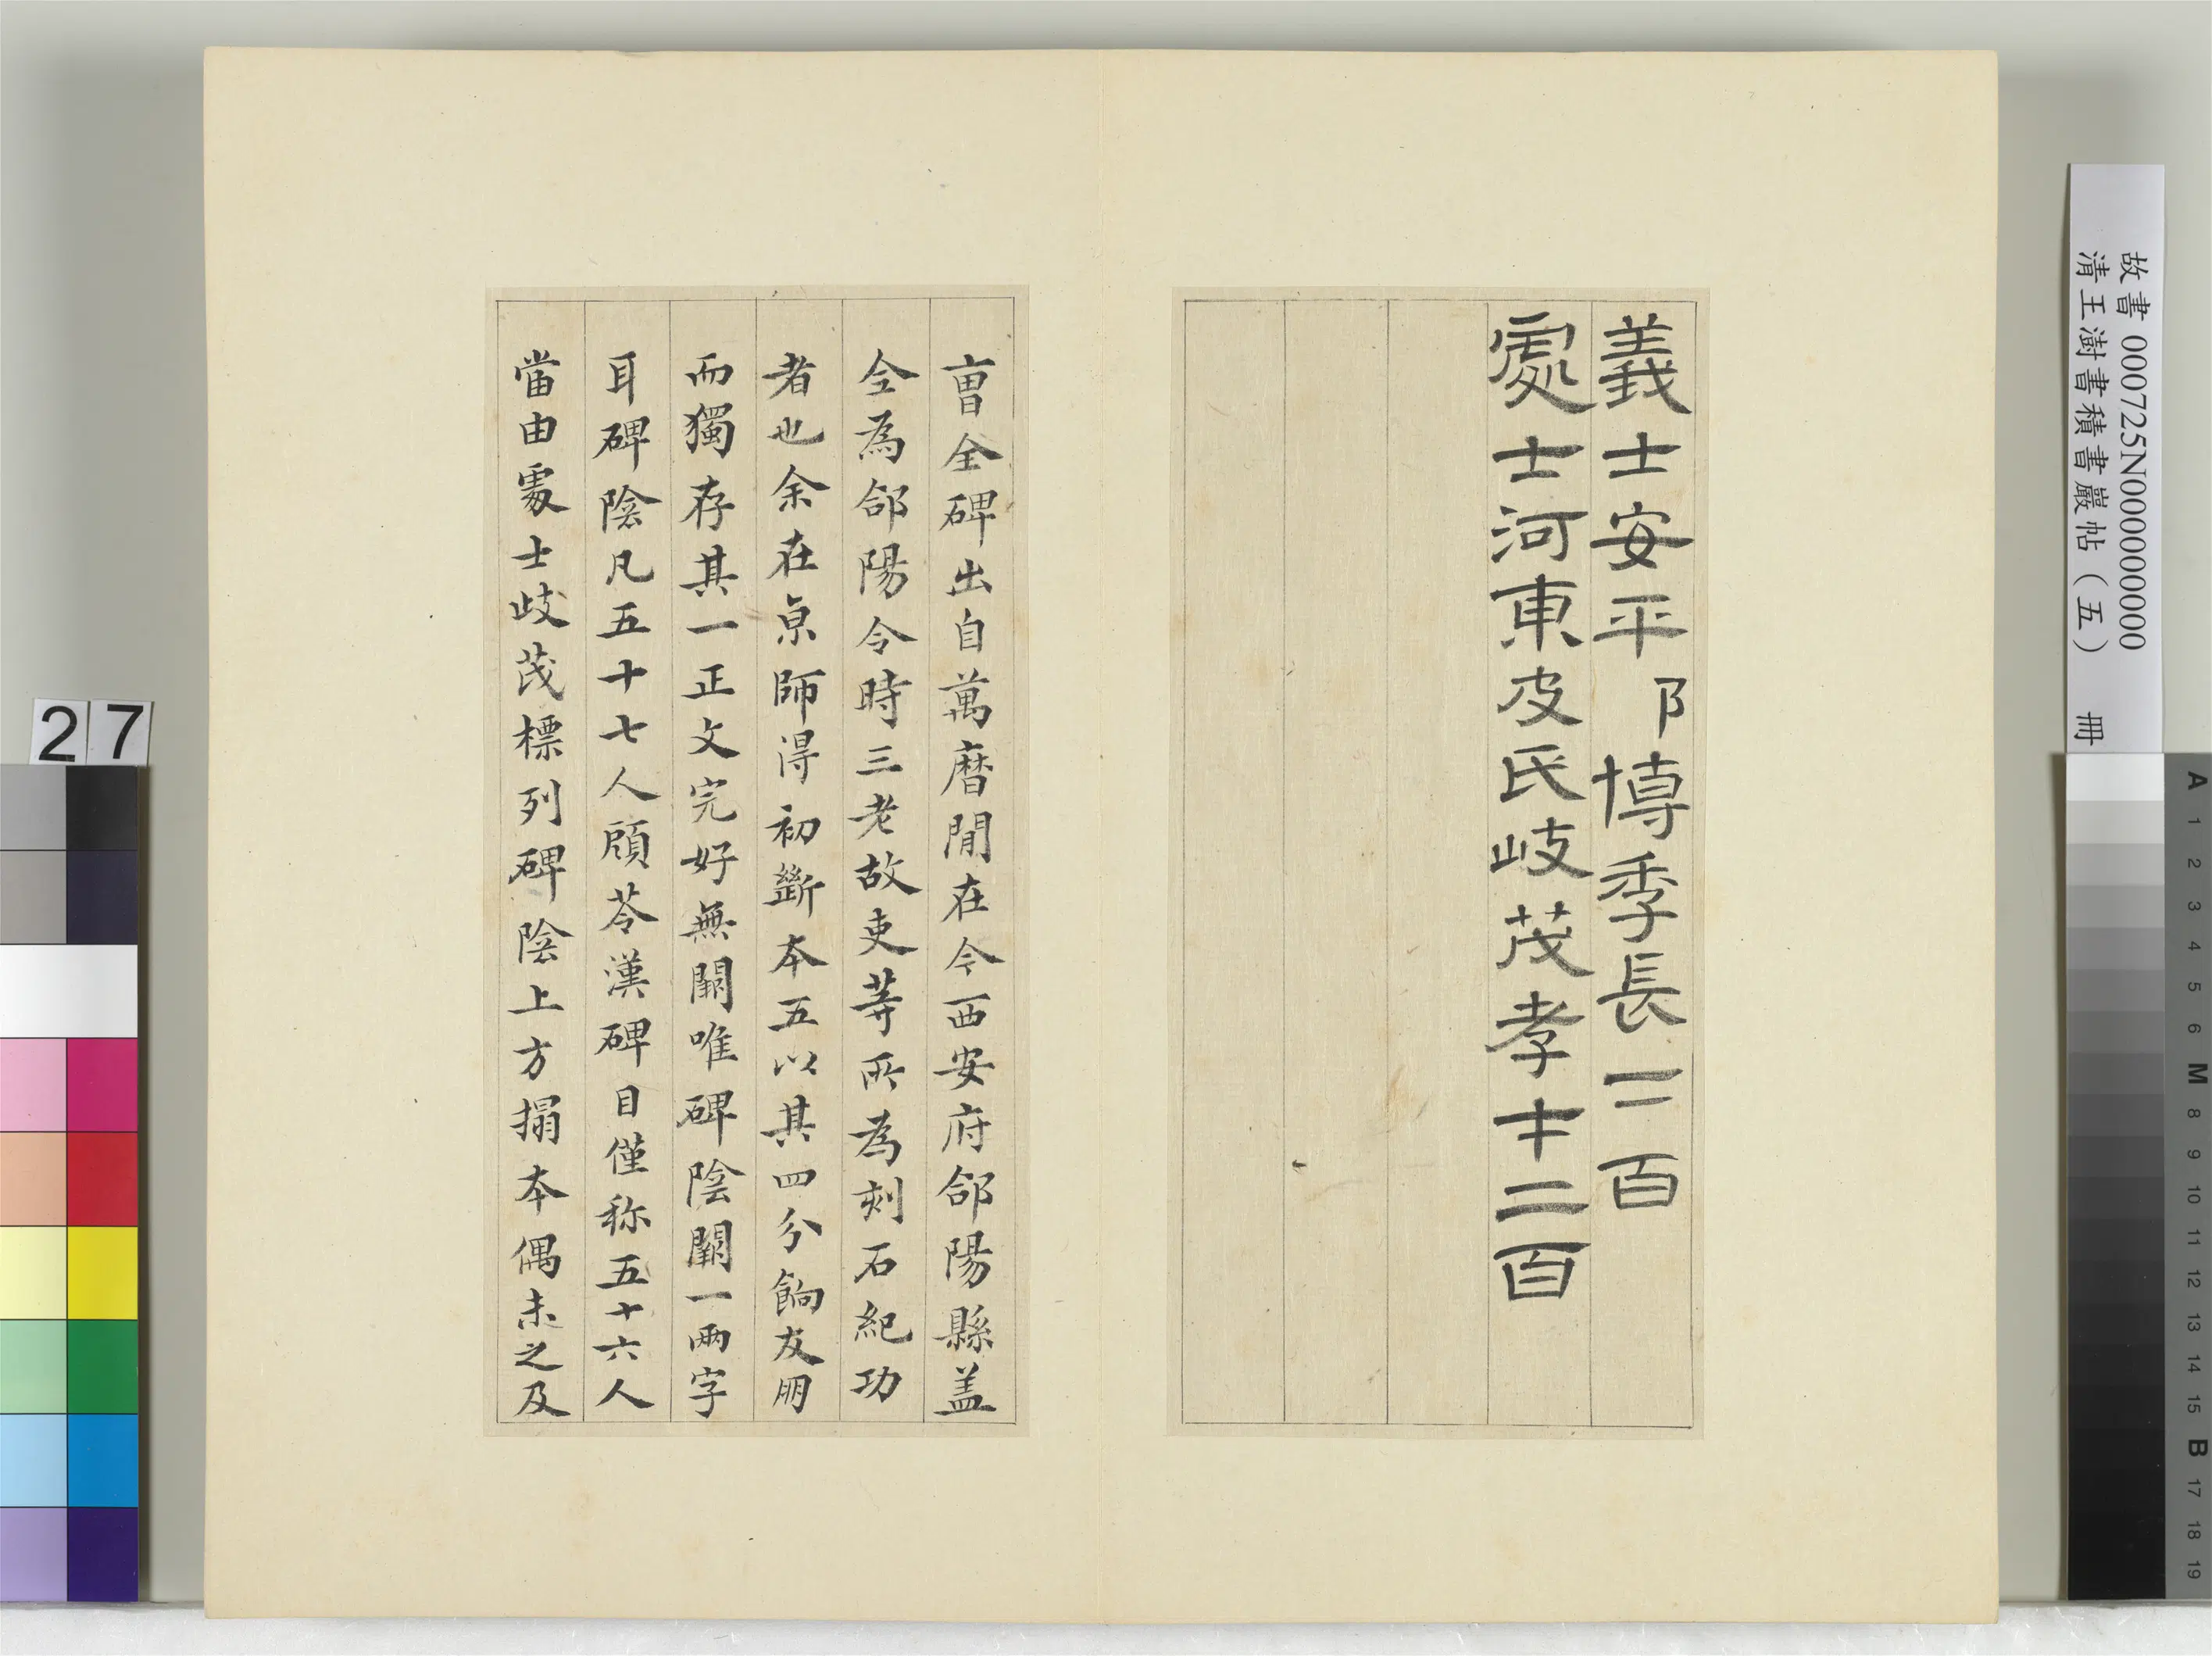 義士安平阝博季長二百
處士河東皮氏岐茂孝才二百
曺全碑出自萬曆間在今西安府郃陽縣盖
全為郃陽令時三老故吏等所為刻石紀功
者也余在京師得初斷本五以其四分餉友朋
而獨存其一正文完好無闕唯碑陰闕一兩字
耳碑陰凡五十七人顧苓漢碑目僅称五十六人
當由處士岐茂標列碑陰上方搨本偶未之及
故書000725N000000000
清王澍書積書巖帖(五) 冊
27
A 1 2 3 4 5 6 M 8 9 10 11 12 13 14 15 B 17 18 19